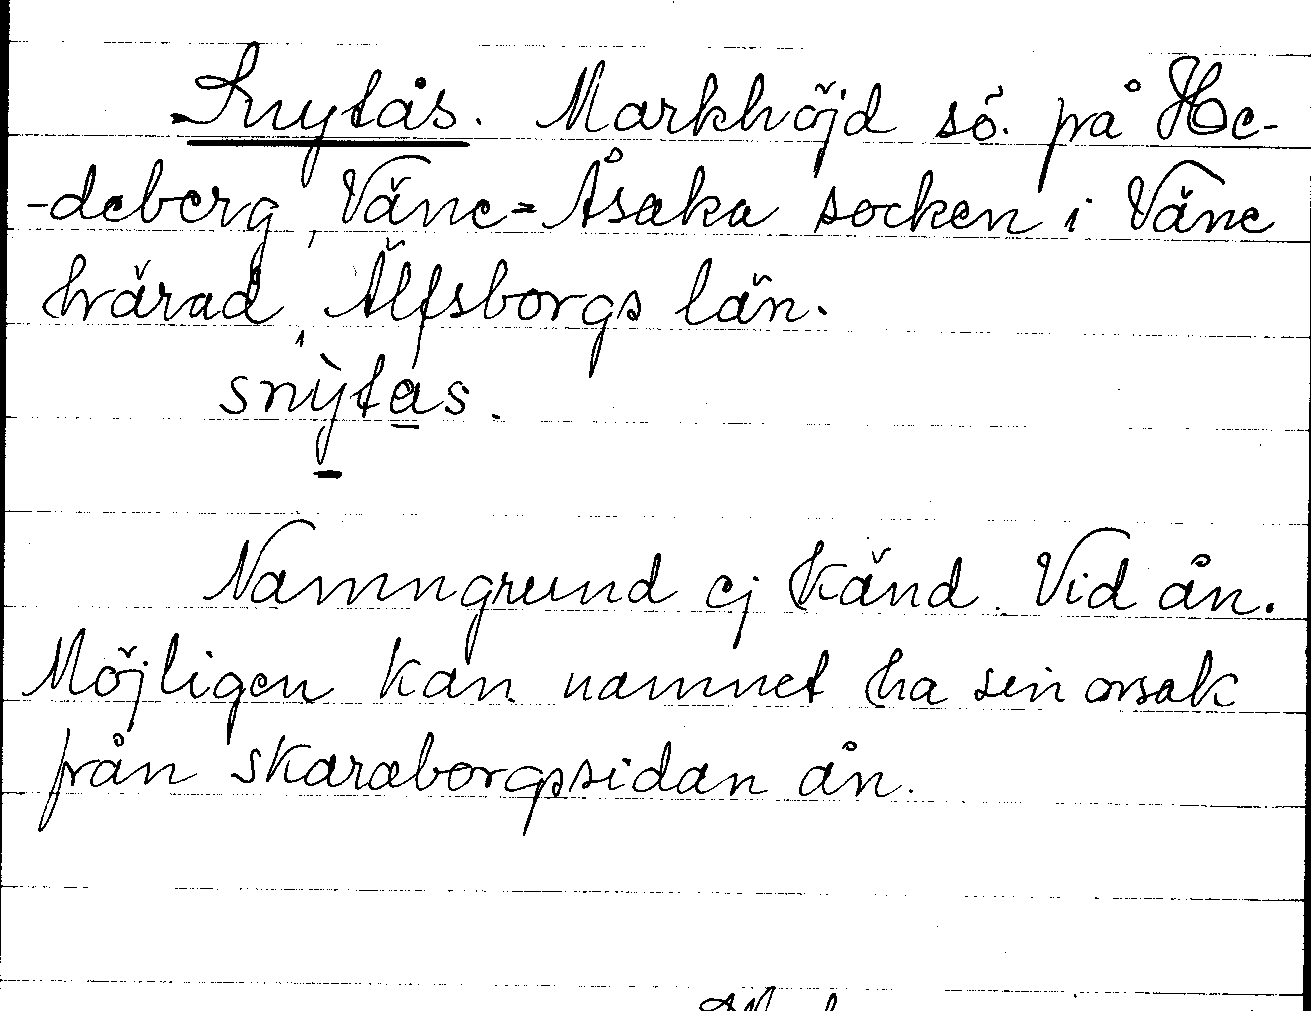 Snytås. Markhöjd sö. på He-
-deberg, Väne-Åsaka socken i Väne
härad, Älfsborgs län.
snỳtas.
Namngrund ej känd. Vid ån.
Möjligen kan namnet ha sin orsak
från skaraborgssidan ån.